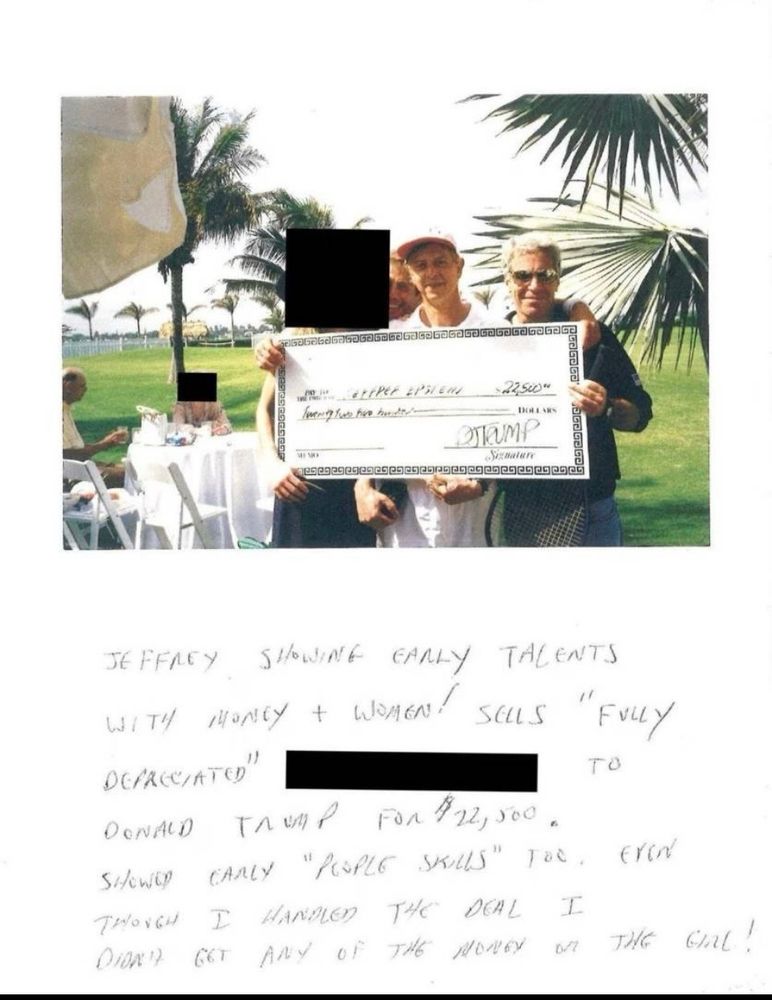 PAY TO
THE ORDER OF JEFFREY EPSTEIN $22,500.00
DOLLARS
DJTRUMP
MEMO Signature
JEFFREY SHOWING EARLY TALENTS
WITH MONEY + WOMEN! SELLS "FULLY
DEPRECIATED" TO
DONALD TRUMP FOR $22,500.
SHOWED EARLY "PEOPLE SKILLS" TOO. EVEN
THOUGH I HANDLED THE DEAL I
DIDN'T GET ANY OF THE MONEY OR THE GIRL!